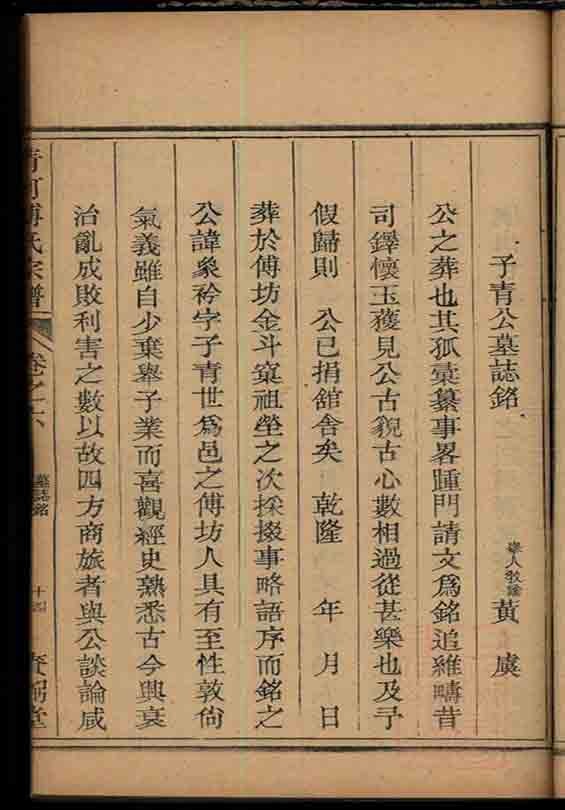 子青公墓誌銘
舉人教諭黃 虞
公之葬也其孤彙纂事畧踵門請文爲銘追維疇昔
司鐸懷玉獲見公古貌古心數相過從甚樂也及予
假歸則 公已捐舘舍矣 乾隆 年 月 日
葬於傅坊金斗窠祖塋之次採掇事略語序而銘之
公諱象衿字子青世爲邑之傅坊人具有至性敦尙
氣義雖自少棄舉子業而喜觀經史熟悉古今興衰
治亂成敗利害之數以故四方商旅者與公談論咸
清河傅氏宗譜 卷之六 墓誌銘 十四